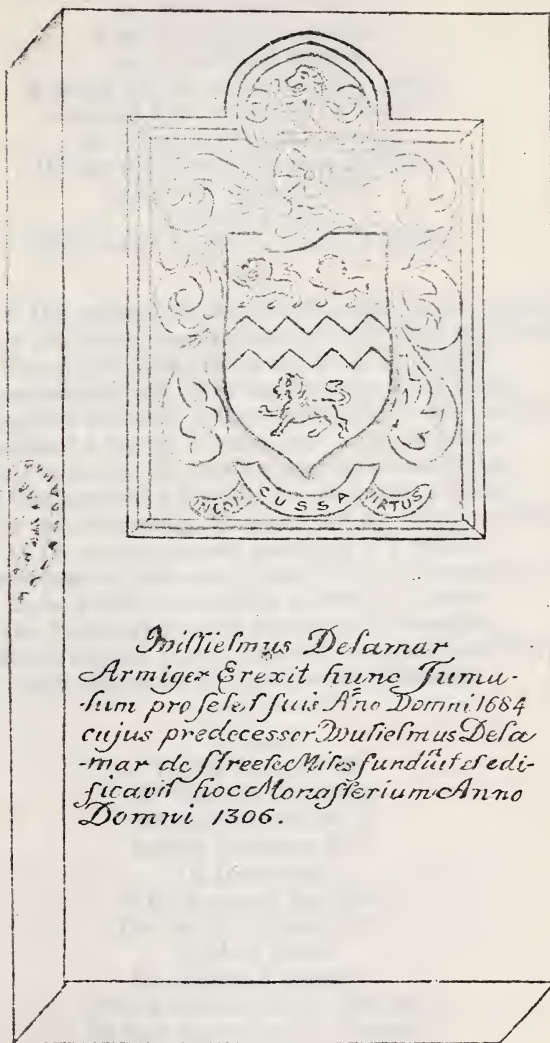 INCON CUSSA VIRTUS
Guillielmus Delamar
Armiger Erexit hunc Tumu-
-lum pro se et suis Año Domni 1684
cujus predecessor Guilielmus Dela
-mar de Streete Miles fundũit et edi-
ficavit hoc Monasterium Anno
Domni 1306.